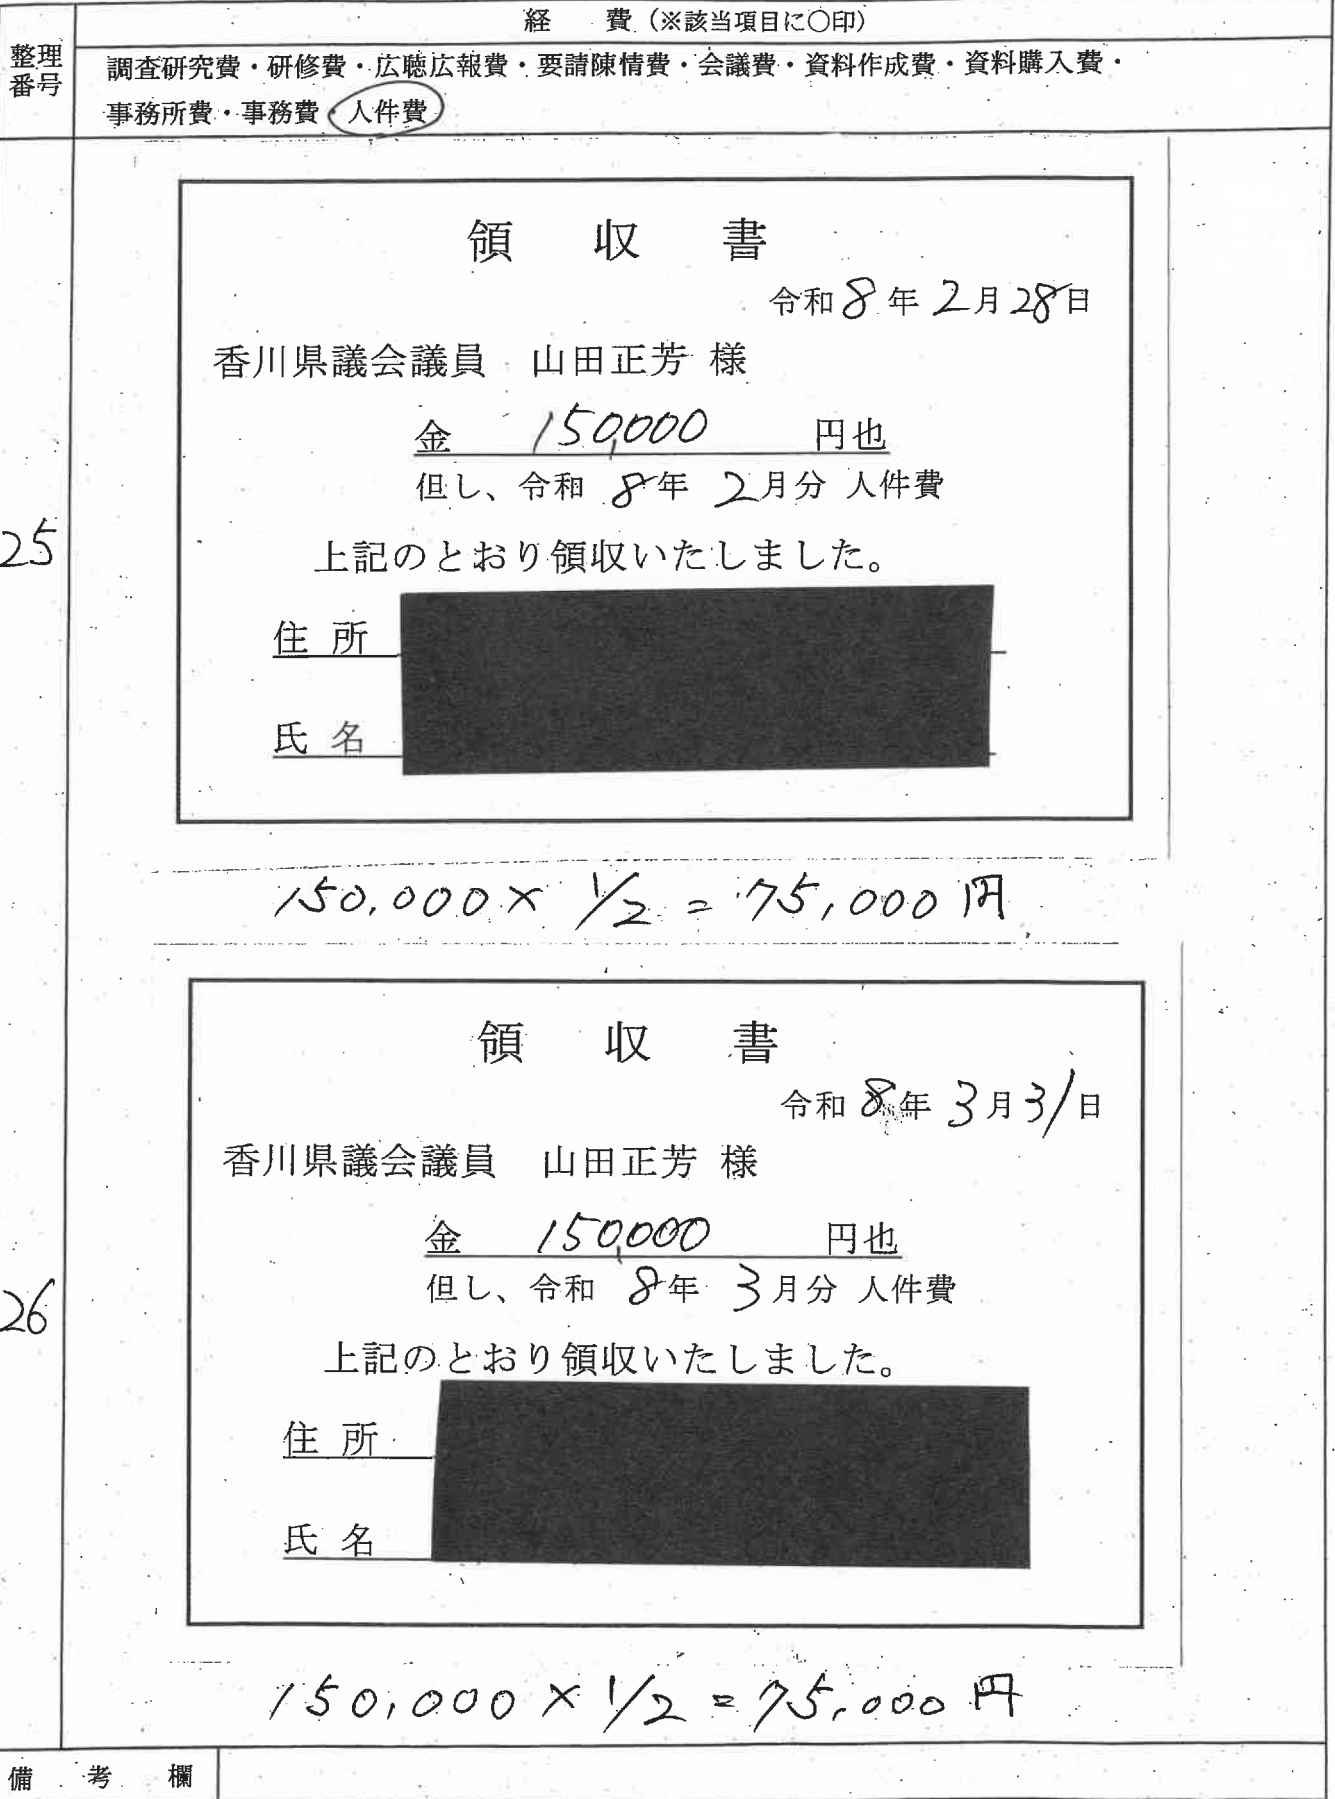 経　費（※該当項目に○印）
整理
番号
調査研究費・研修費・広聴広報費・要請陳情費・会議費・資料作成費・資料購入費・
事務所費・事務費・人件費
領　収　書
令和8年2月28日
香川県議会議員　山田正芳 様
金　150,000　円也
但し、令和 8年 2月分 人件費
25
上記のとおり領収いたしました。
住 所
氏 名
150,000 × 1/2 = 75,000 円
領　収　書
令和8年3月31日
香川県議会議員　山田正芳 様
金　150,000　円也
但し、令和 8年 3月分 人件費
26
上記のとおり領収いたしました。
住 所
氏 名
150,000 × 1/2 = 75,000 円
備　考　欄